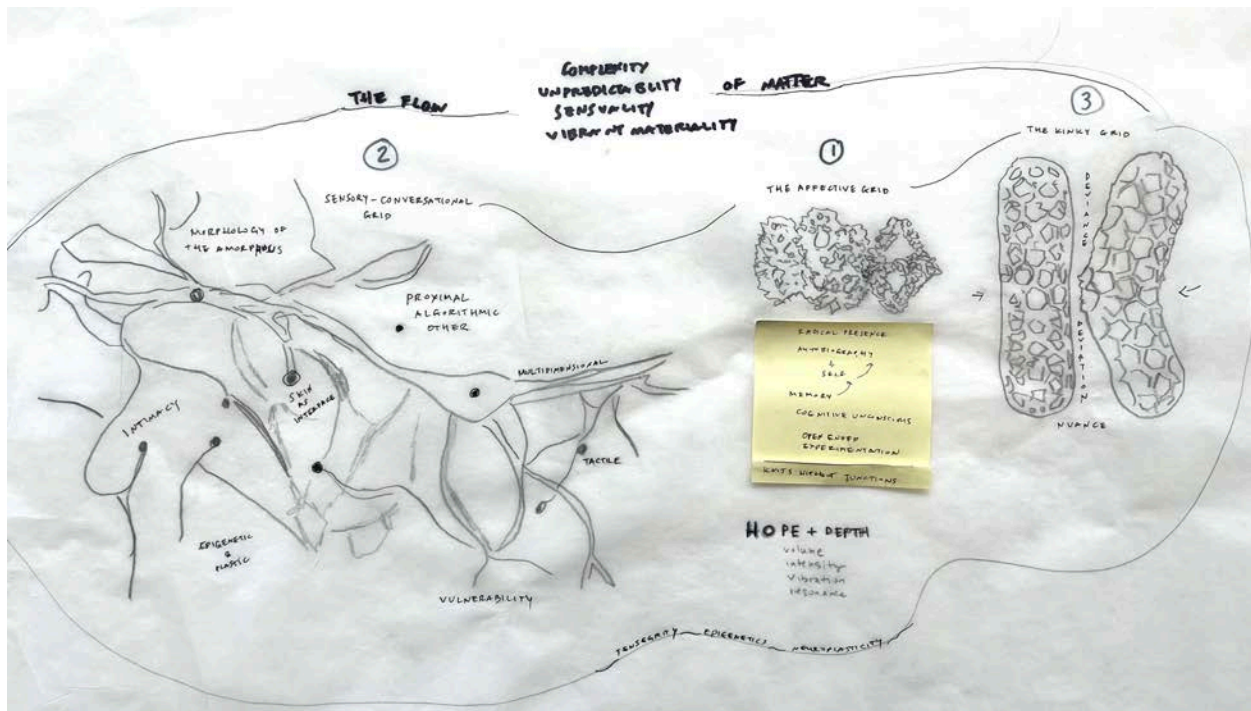 THE FLOW
COMPLEXITY
UNPREDICTABILITY
SENSUALITY
VIBRANT MATERIALITY
OF MATTER
2
SENSORY-CONVERSATIONAL
GRID
MORPHOLOGY OF
THE AMORPHOUS
PROXIMAL
ALGORITHMIC
OTHER
MULTIDIMENSIONAL
SKIN
AS
INTERFACE
INTIMACY
TACTILE
EPIGENETIC
&
PLASTIC
VULNERABILITY
1
THE AFFECTIVE GRID
RADICAL PRESENCE
AUTOBIOGRAPHY
+
SELF
MEMORY
COGNITIVE UNCONSCIOUS
OPEN ENDED
EXPERIMENTATION
KNITS WITHOUT JUNCTIONS
HOPE + DEPTH
volume
intensity
vibration
resonance
3
THE KINKY GRID
DEVIANCE
DEVIATION
NUANCE
TENSEGRITY EPIGENETICS NEUROPLASTICITY